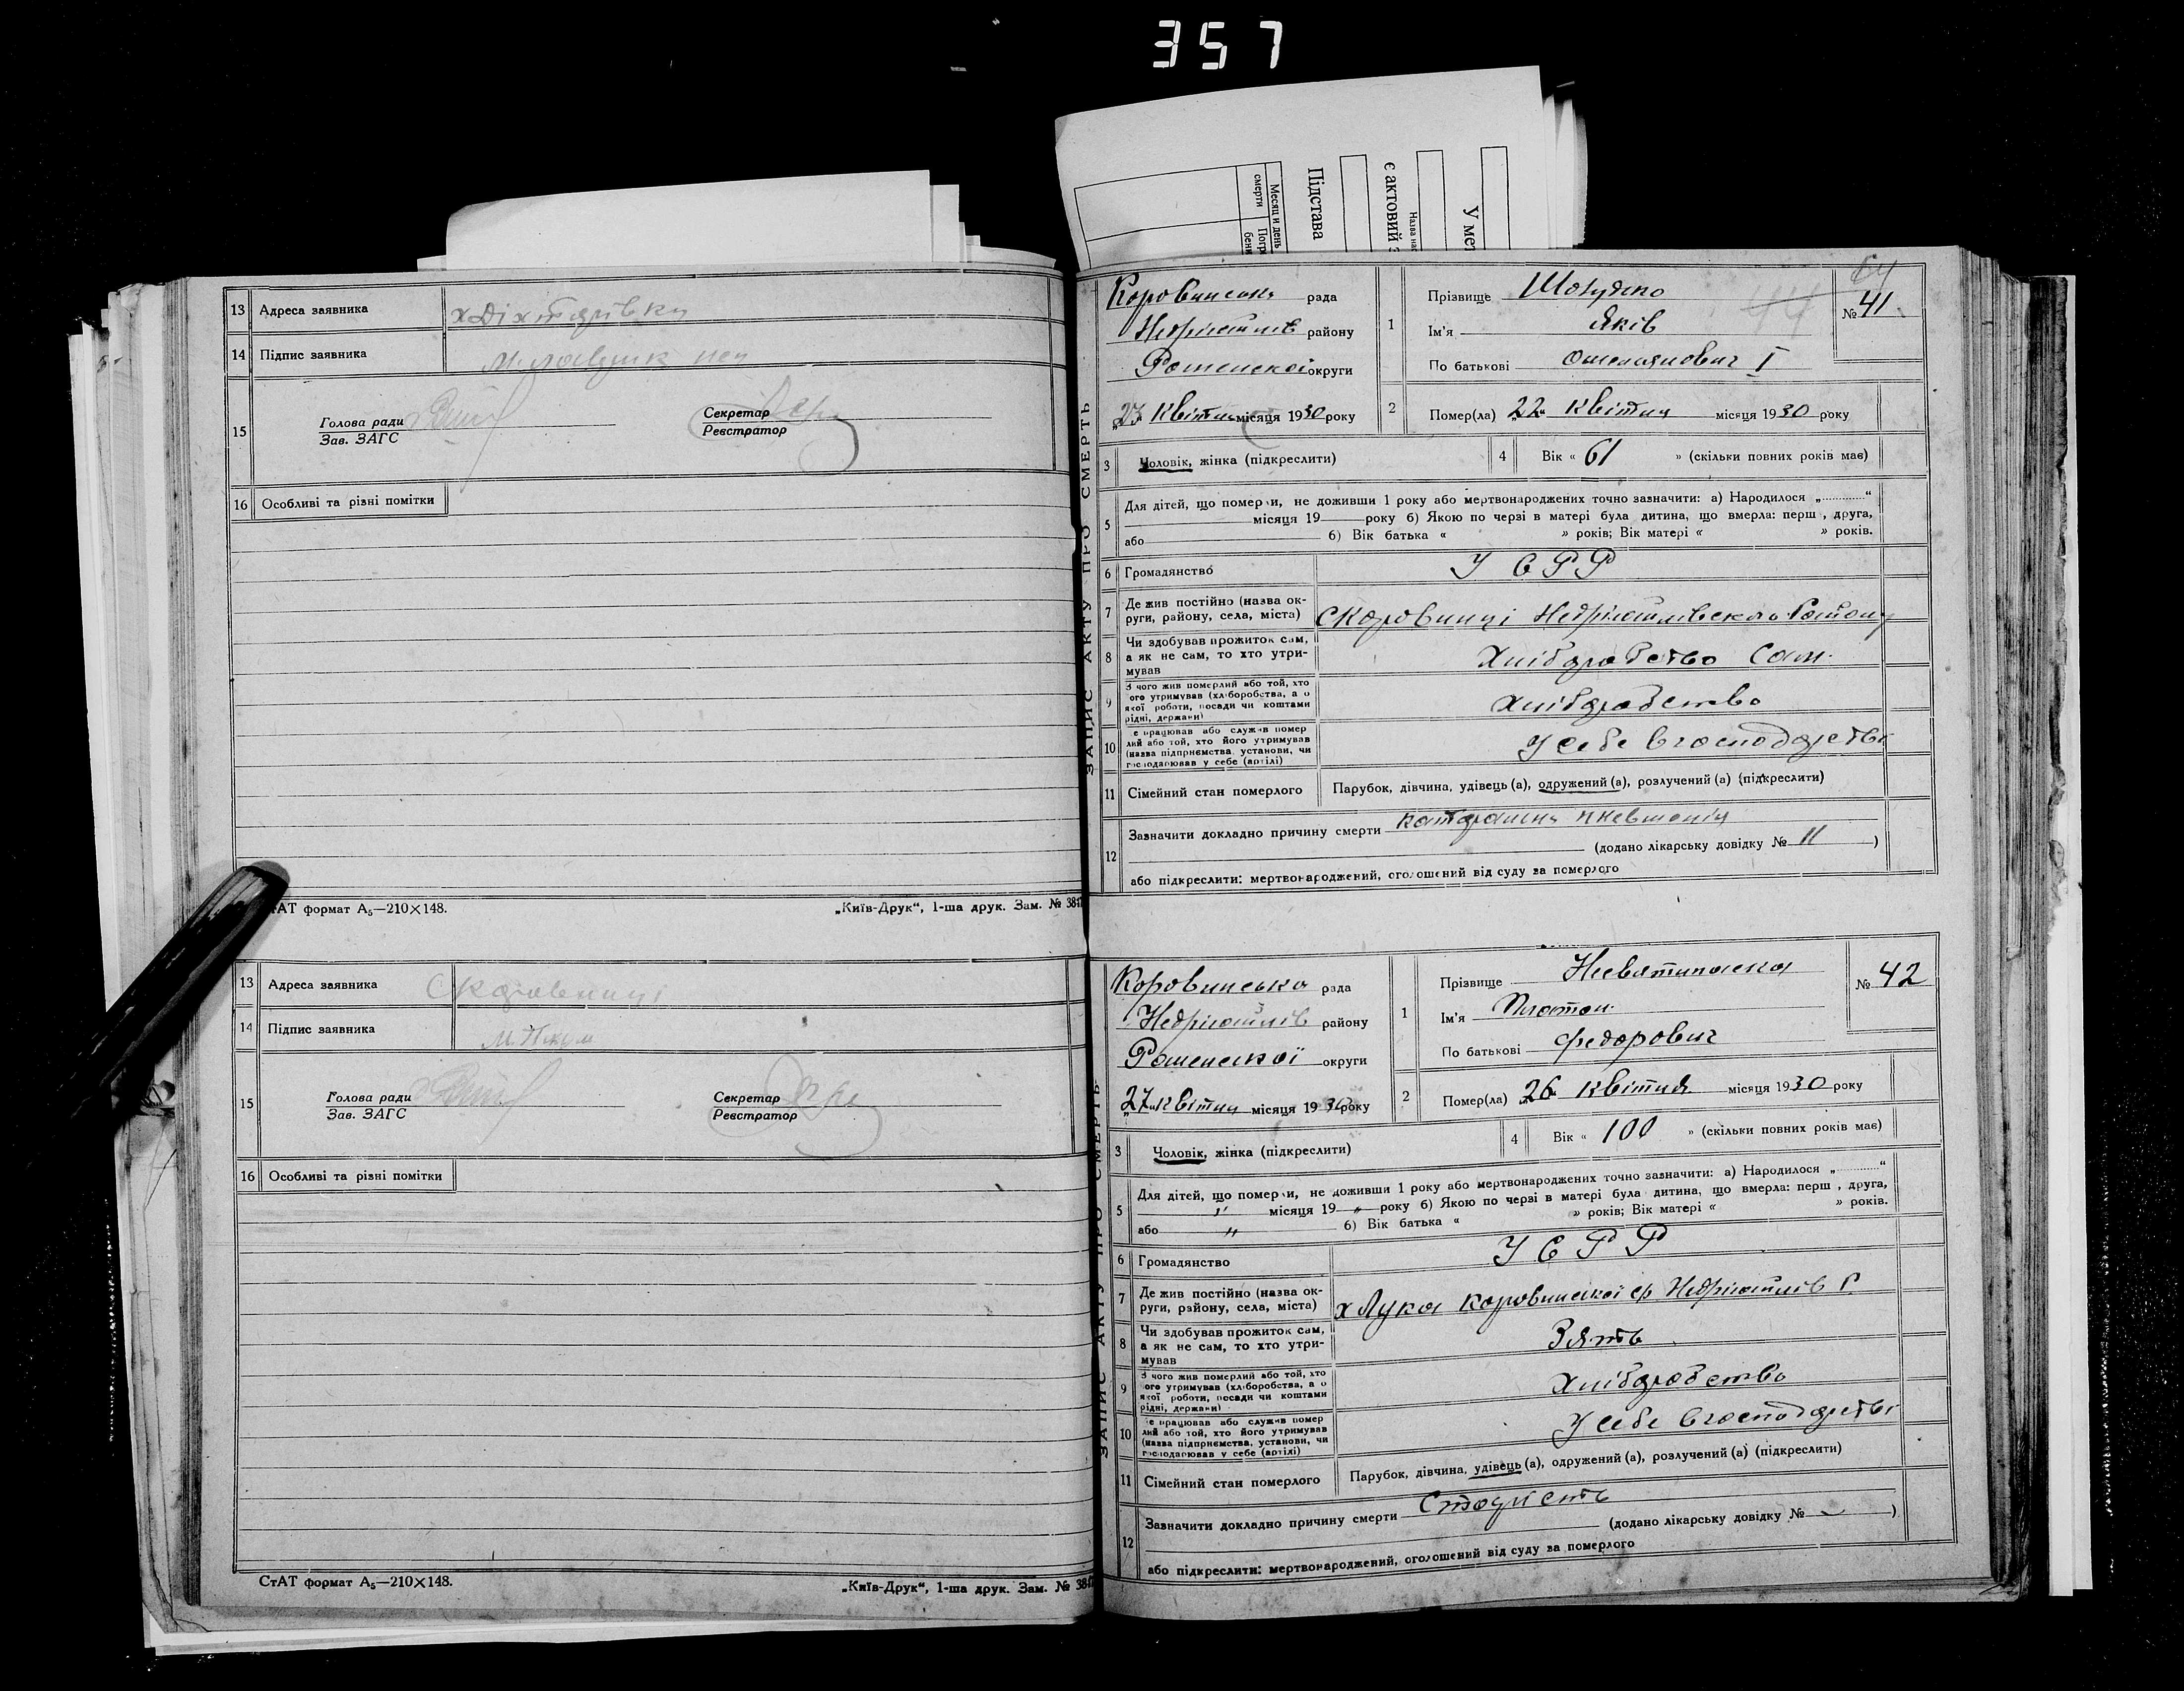 357
Месяц и день смерти
Підстава
є актовий
У мет
13 Адреса заявника х Діхтярівка
14 Підпис заявника
15 Голова ради
Зав. ЗАГС
Секретар
Реєстратор
16 Особливі та різні помітки
СтАТ формат А5—210×148.
„Київ-Друк“, 1-ша друк. Зам. № 38
13 Адреса заявника С Коровинці
14 Підпис заявника
15 Голова ради
Зав. ЗАГС
Секретар
Реєстратор
16 Особливі та різні помітки
СтАТ формат А5—210×148.
„Київ-Друк“, 1-ша друк. Зам. № 38
ЗАПИС АКТУ ПРО СМЕРТЬ
Коровинська рада
Недригайлів району
Роменської округи
„27 Квітня місяця 1930 року
1 Прізвище
Ім'я Яків
По батькові Омелянович I
№ 41
2 Помер(ла) „22“ Квітня місяця 1930 року
3 Чоловік, жінка (підкреслити)
4 Вік « 61 » (скільки повних років має)
5 Для дітей, що померли, не доживши 1 року або мертвонароджених точно зазначити: а) Народилося „ “
місяця 19 року б) Якою по черзі в матері була дитина, що вмерла: перш , друга,
або б) Вік батька « » років; Вік матері « » років.
6 Громадянство У С Р Р
7 Де жив постійно (назва ок-
руги, району, села, міста) С Коровинці Недригайлівського Району
8 Чи здобував прожиток сам,
а як не сам, то хто утри-
мував Хліборобство Сам
9 З чого жив померлий або той, хто
ого утримував (хліборобства, а о
якої роботи, посади чи коштами
рідні, держави) Хліборобство
10 е працював або служив помер
лий або той, хто його утримував
(назва підприємства, установи, чи
господарював у себе (артілі) У себе в господарстві
11 Сімейний стан померлого Парубок, дівчина, удівець (а), одружений (а), розлучений (а) (підкреслити)
12 Зазначити докладно причину смерти катаральна пневмонія
(додано лікарську довідку № 11 )
або підкреслити: мертвонароджений, оголошений від суду за померлого
ЗАПИС АКТУ ПРО СМЕРТЬ
Коровинська рада
Недригайлів району
Роменської округи
„27“ квітня місяця 1930 року
1 Прізвище
Ім'я Платон
По батькові Федорович
№ 42
2 Помер(ла) „26“ квітня місяця 1930 року
3 Чоловік, жінка (підкреслити)
4 Вік « 100 » (скільки повних років має)
5 Для дітей, що померли, не доживши 1 року або мертвонароджених точно зазначити: а) Народилося „ “
„ місяця 19 „ року б) Якою по черзі в матері була дитина, що вмерла: перш , друга,
або „ б) Вік батька « » років; Вік матері « » років.
6 Громадянство У С Р Р
7 Де жив постійно (назва ок-
руги, району, села, міста) х Лука Коровинської ср Недригайлів Р.
8 Чи здобував прожиток сам,
а як не сам, то хто утри-
мував Зять
9 З чого жив померлий або той, хто
ого утримував (хліборобства, а о
якої роботи, посади чи коштами
рідні, держави) Хліборобство
10 е працював або служив помер
лий або той, хто його утримував
(назва підприємства, установи, чи
господарював у себе (артілі) У себе в господарстві
11 Сімейний стан померлого Парубок, дівчина, удівець (а), одружений (а), розлучений (а) (підкреслити)
12 Зазначити докладно причину смерти Старість
(додано лікарську довідку № )
або підкреслити: мертвонароджений, оголошений від суду за померлого